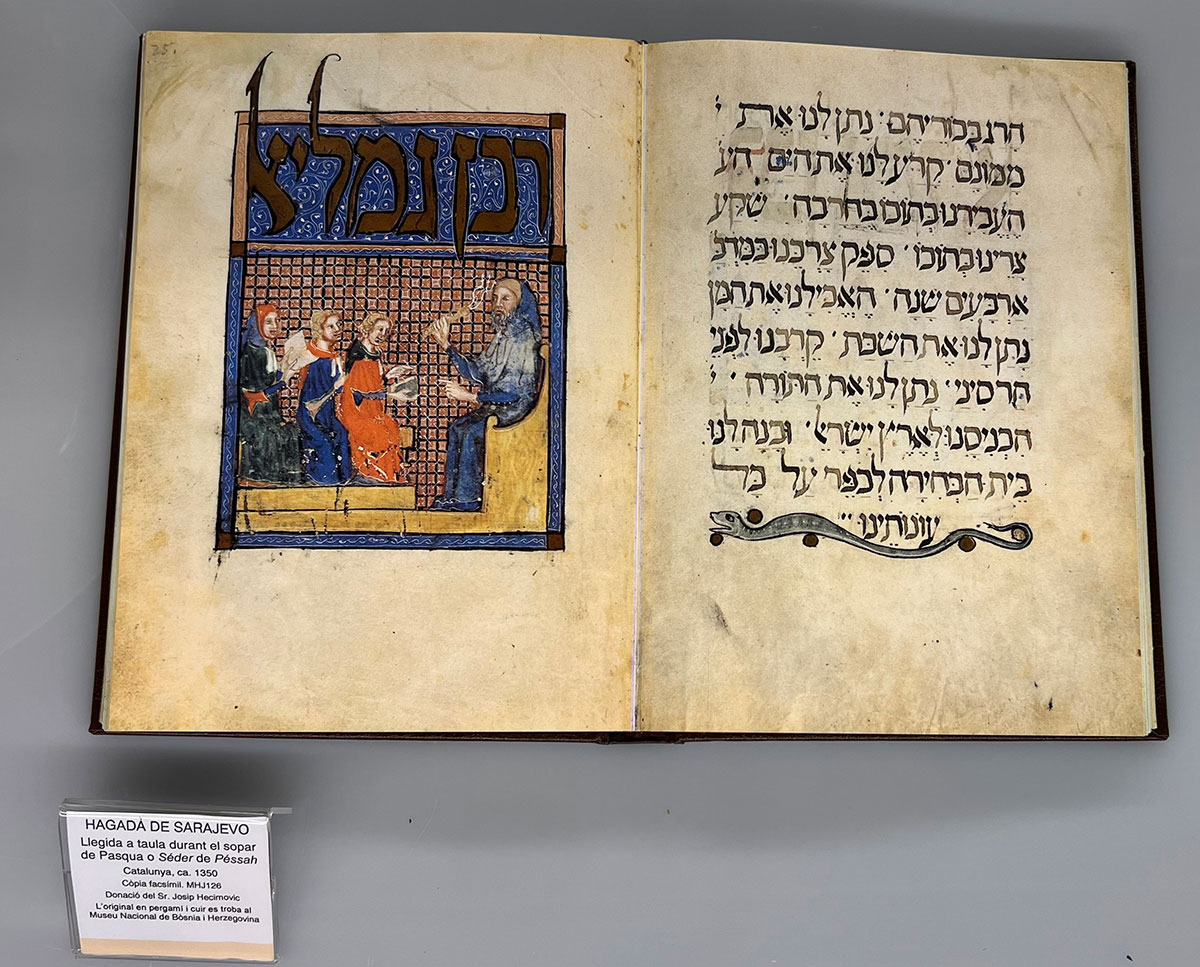 הרג בכוריהם · נתן לנו את י
ממונם · קרע לנו את הים · הע
העבירנו בתוכו בחרבה · שקע
צרינו בתוכו · ספק צרכנו במדב
ארבעים שנה · האכילנו את המן
נתן לנו את השבת · קרבנו לפני
הר סיני · נתן לנו את התורה · י
הכניסנו לארץ ישראל · ובנה לנו
בית הבחירה לכפר על כל
עונותינו
25.
רבן גמליא
HAGADÀ DE SARAJEVO
Llegida a taula durant el sopar
de Pasqua o Séder de Péssah
Catalunya, ca. 1350
Còpia facsímil. MHJ126
Donació del Sr. Josip Hecimovic
L'original en pergamí i cuir es troba al
Museu Nacional de Bòsnia i Herzegovina